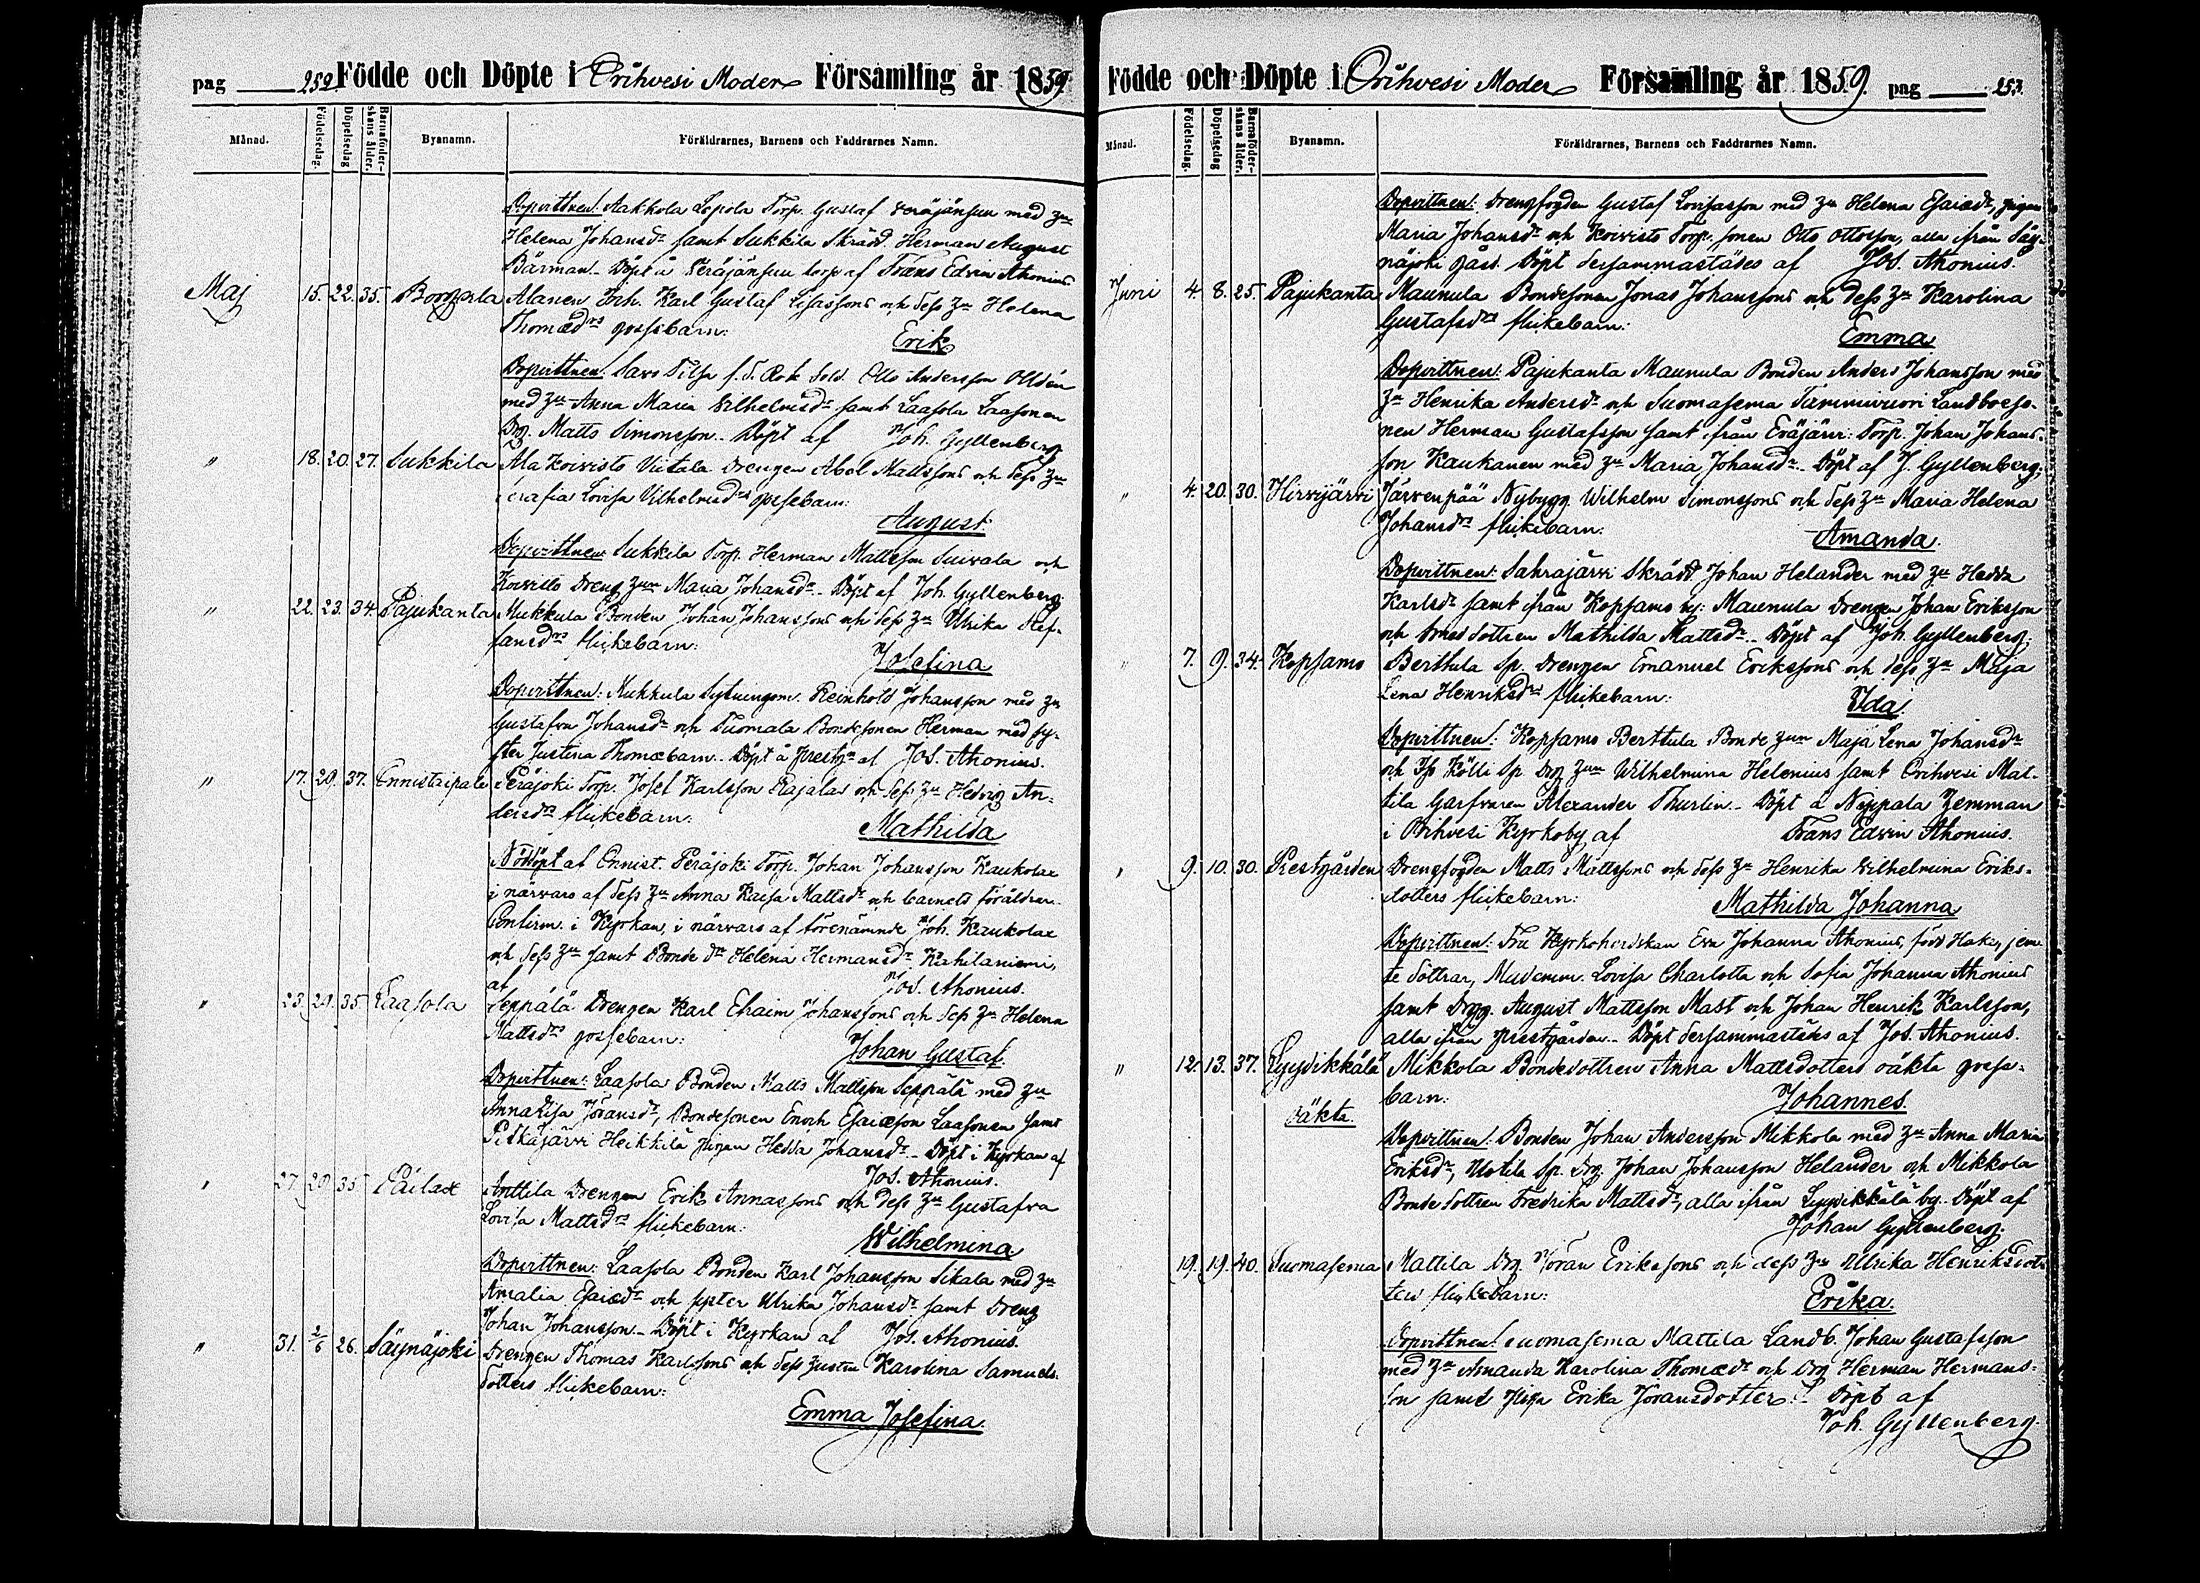 pag 252 Födde och Döpte i Orihvesi Moder Församling år 1859
Månad. Födelsedag. Döpelsedag Barnaföderskans ålder. Byanamn. Föräldrarnes, Barnens och Faddrarnes Namn.
Dopvittnen: Aakkola Lepola Torp. Gustaf med Zn
Helena Johansdr samt Sukkila Skrädd. Herman August
Bärman. Döpt å torp af Frans Edvin Ahonius
Maj 15. 22. 35. Alanen Karl Gustaf och dess Zu Helena
Thomædrs gossebarn:
Erik
Dopvittnen: Otto Andersson Oldén
med Zu Anna Maria Vilhelmsdr samt Laasola Laasonen
Drg. Matts Simonsson. Döpt af Joh. Gyllenberg
" 18. 20. 27. Sukkila Ala Koivisto Viitala Drengen Abel Mattssons och dess Zu
Serafia Lovisa Vilhelmsdrs gossebarn:
August.
Dopvittnen: Sukkila Torp. Herman Mattsson och
Koivisto Dreng Zun Maria Johansdr. Döpt af Joh. Gyllenberg.
" 22. 23. 34. Pajukanta Mukkula Bonden Johan Johanssons och dess Zu Ulrika Stef-
fansdrs flickebarn:
Josefina
Dopvittnen: Mukkula Reinhold Johansson med Zn
Gustafva Johansdr och Tuomala Bondesonen Herman med sy-
ster Justina Thomæbarn. Döpt å prestg. af Jos. Ahonius.
" 17. 29. 37. Peräjoki Torp. Josef Karlsson Rajalas och dess Zu Hedvig An-
dersdrs flickebarn:
Mathilda
Nöddöpt af Ennist. Peräjoki Torp. Johan Johansson Kaukolax
i närvaro af dess Zu Anna Kaisa Mattsdr och barnets föräldrar.
Confirm. i Kyrkan, i närvaro af förenämnde Joh. Kaukolax
och dess Zu samt Bonde dr Helena Hermansdr Kahilaniemi,
af Jos. Ahonius.
" 23. 29. 35. Laasola Seppälä Drengen Karl Efraim Johanssons och dess Zu Helena
Mattsdrs gossebarn:
Johan Gustaf.
Dopvittnen: Laasola Bonden Matts Mattsson Seppälä med Zu
Anna Lisa Jöransdr, Bondesonen Enoch Esaiæson Laasonen samt
Pitkäjärvi Heikkilä pigan Hedda Johansdr. Döpt i Kyrkan af
Jos. Ahonius.
" 27. 29. 35. Päilax Anttila Drengen Erik Annassons och dess Zu Gustafva
Lovisa Mattsdrs flickebarn:
Wilhelmina
Dopvittnen: Laasola Bonden Karl Johansson Sikala med Zu
Amalia Esaiædr och syster Ulrika Johansdr samt Dreng
Johan Johansson. Döpt i Kyrkan af Jos. Ahonius.
" 31. 2/6 26. Säynäjoki Drengen Thomas Karlssons och dess hustru Karolina Samuels-
dotters flickebarn:
Emma Josefina.
Födde och Döpte i Orihvesi Moder Församling år 1859. pag 253.
Månad. Födelsedag. Döpelsedag Barnaföderskans ålder. Byanamn. Föräldrarnes, Barnens och Faddrarnes Namn.
Dopvittnen: Drengfogden Gustaf Lovisasson med Zu Helena Esaiædr, pigan
Maria Johansdr och Koivisto Torp. sonen Otto Ottosson, alla ifrån Säy-
näjoki gård. Döpt dersammastädes af Jos. Ahonius.
Juni 4. 8. 25. Pajukanta Maunula Bondesonen Jonas Johanssons och dess Zu Karolina
Gustafsdrs flickebarn:
Emma
Dopvittnen: Pajukanta Maunula Bonden Anders Johansson med
Zn Henrika Andersdr och Suomasema Tammivuori Landboeso-
nen Herman Gustafsson samt ifrån Eräjärvi: Torp. Johan Johans-
son Kaukanen med Zu Maria Johansdr. Döpt af J. Gyllenberg;
" 4. 20. 30. Hirvijärvi Järvenpää Nybygg. Wilhelm Simonssons och dess Zu Maria Helena
Johansdrs flickebarn:
Amanda.
Dopvittnen: Sahrajärvi Skrädd. Johan Helander med Zu Hedda
Karlsdr samt ifrån Kopsamo by: Maunula Drengen Johan Eriksson
och Smed dottren Mathilda Mattsdr. Döpt af Joh. Gyllenberg;
" 7. 9. 34. Kopsamo Berttula Sp. Drengen Emanuel Erikssons och dess Zu Maja
Lena Henriksdrs flickebarn:
Ida.
Dopvittnen: Kopsamo Berttula Bonde Zun Maja Lena Johansdr
och Kölli Sp. Drg Zun Wilhelmina Helenius samt Orihvesi Mat-
tila Garfvaren Alexander Thurlin. Döpt å Nappala hemman
i Orihvesi Kyrkoby af Frans Edvin Ahonius.
" 9. 10. 30. Prestgården Drengfogden Matts Mattssons och dess Zu Henrika Wilhelmina Eriks-
dotters flickebarn:
Mathilda Johanna
Dopvittnen: Fru Kyrkoherdskan Eva Johanna Ahonius, född Hake, jem-
te döttrar, Lovisa Charlotta och Sofia Johanna Ahonius
samt Drgg. August Mattsson Mast och Johan Henrik Karlsson,
alla ifrån prestgården. Döpt dersammastädes af Jos. Ahonius.
" 12. 13. 37. Lyydikkälä Mikkola Bondedottren Anna Mattsdotters oäkta gosse-
barn:
oäkta. Johannes.
Dopvittnen: Bonden Johan Andersson Mikkola med Zu Anna Maria
Eriksdr, Uotila Sp. Drg. Johan Johansson Helander och Mikkola
Bonde dottren Fredrika Mattsdr, alla ifrån Lyydikkälä by. Döpt af
Johan Gyllenberg.
19. 19. 40. Suomasema Mattila Drg. Jöran Erikssons och dess Zu Ulrika Henriksdot-
ters flickebarn:
Erika.
Dopvittnen: Suomasema Mattila Landb. Johan Gustafsson
med Zn Amanda Karolina Thomædr och Drg Herman Hermans-
son samt pigan Erika Jöransdotter. Döpt af
Joh. Gyllenberg.